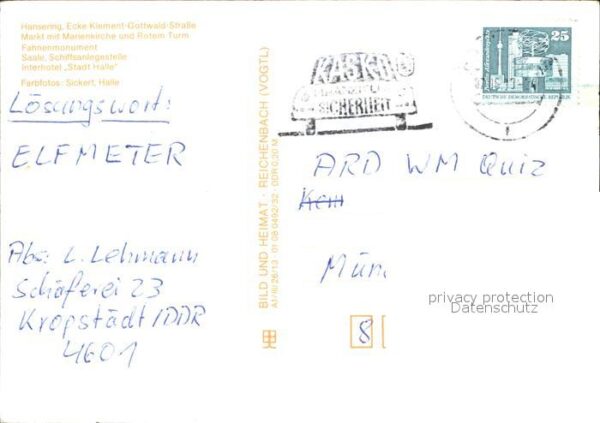 Hansering, Ecke Klement-Gottwald-Straße
Markt mit Marienkirche und Rotem Turm
Fahnenmonument
Saale, Schiffsanlegestelle
Interhotel „Stadt Halle"
Farbfotos: Sickert, Halle
Lösungswort:
ELFMETER
Abs: L. Lehmann
Schäferei 23
Kropstädt/DDR
4601
BILD UND HEIMAT · REICHENBACH (VOGTL)
A1/III/26/13 · 01 08 0492/32 · DDR 0,20 M
KASKO
SICHERHEIT
25
DEUTSCHE DEMOKRATISCHE REPUBLIK
ARD WM Quiz
Mün
8
privacy protection
Datenschutz